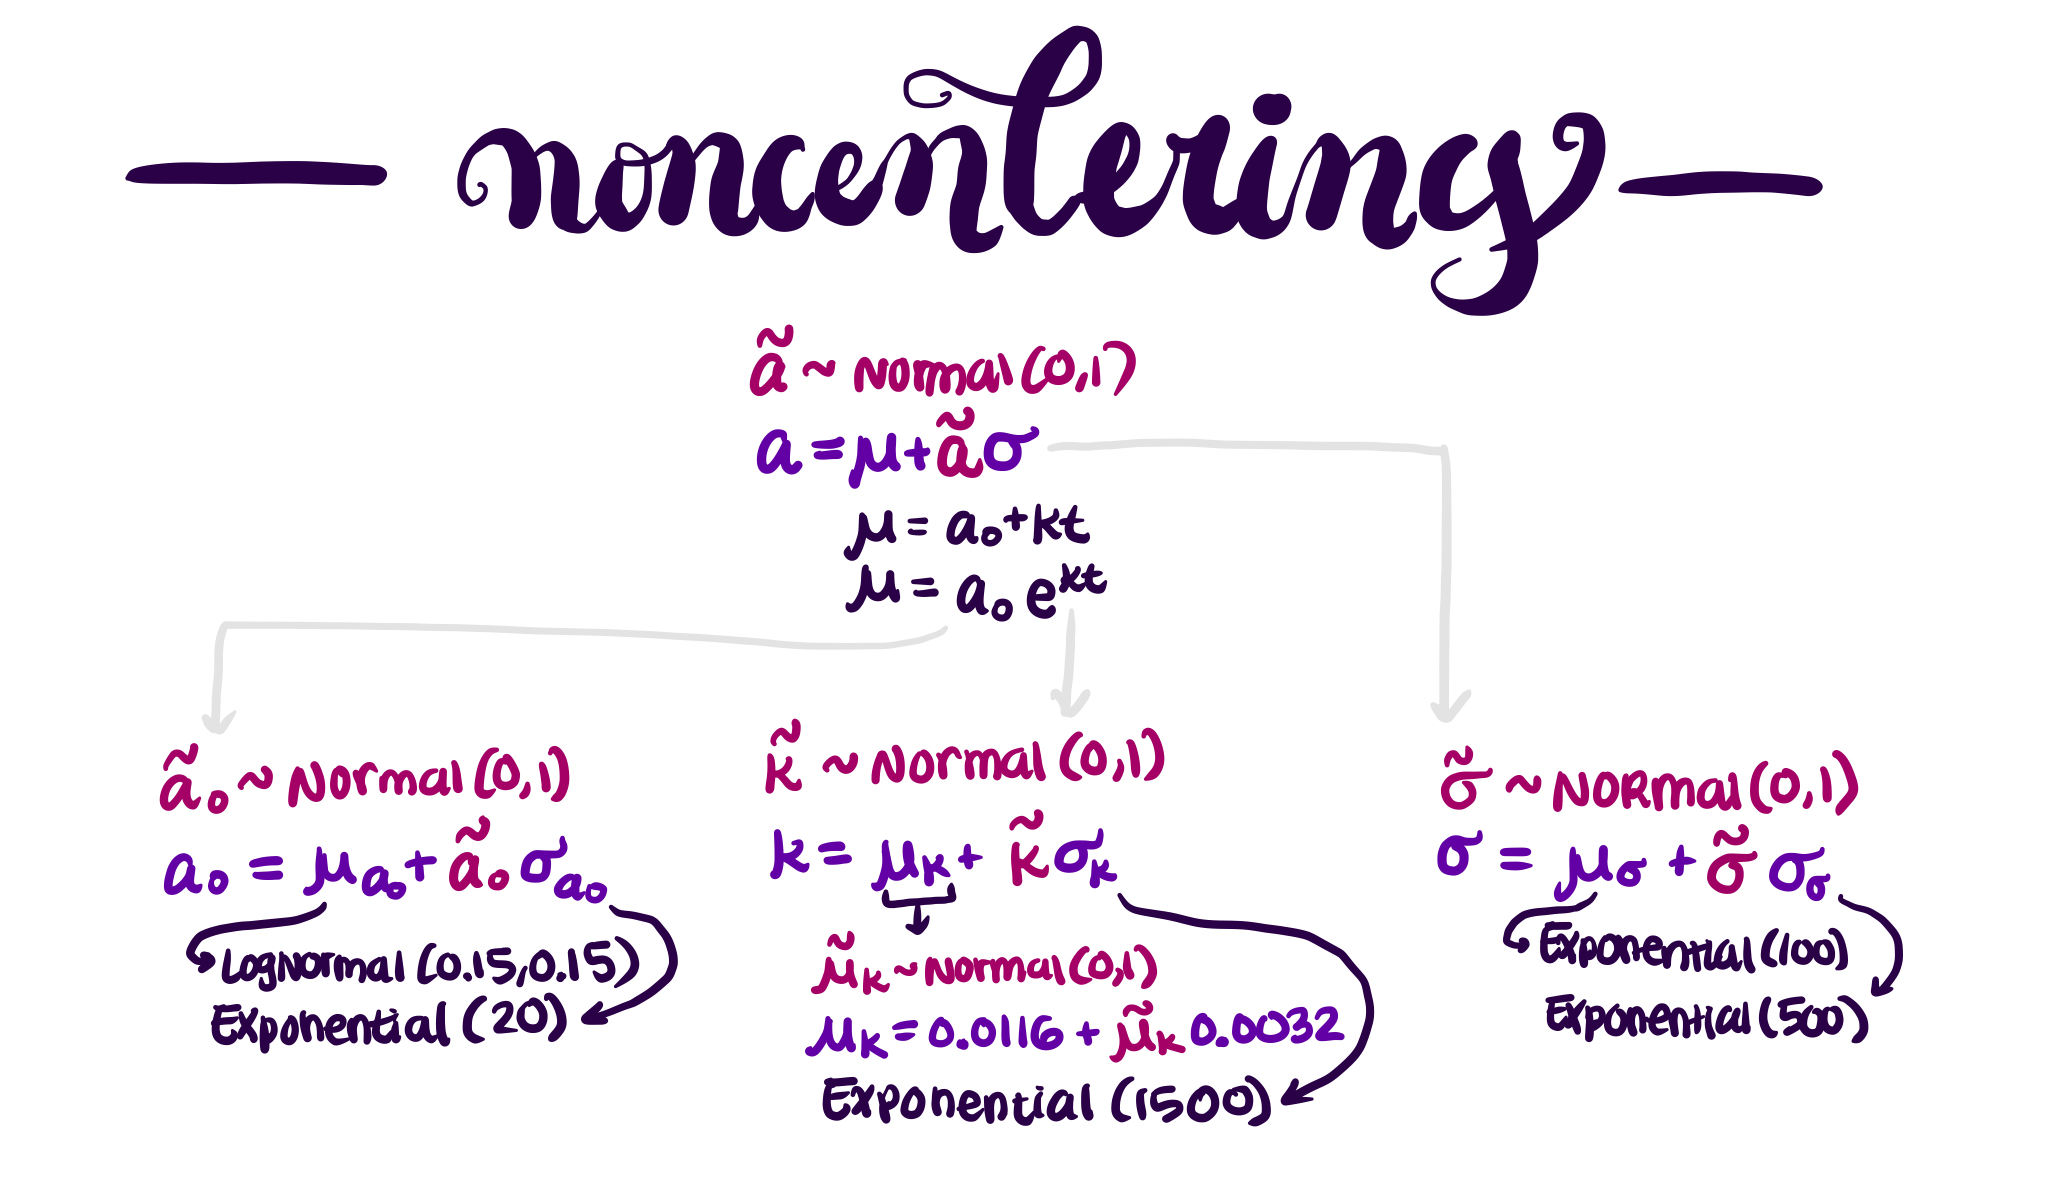 noncentering
ã ~ Normal(0,1)
a = μ + ãσ
μ = a₀ + kt
μ = a₀ e^kt
ã₀ ~ Normal(0,1)
a₀ = μ_a₀ + ã₀ σ_a₀
LogNormal (0.15, 0.15)
Exponential (20)
k̃ ~ Normal (0,1)
k = μ_k + k̃ σ_k
μ̃_k ~ Normal (0,1)
μ_k = 0.0116 + μ̃_k 0.0032
Exponential (1500)
σ̃ ~ NORmal (0,1)
σ = μ_σ + σ̃ σ_σ
Exponential (100)
Exponential (500)